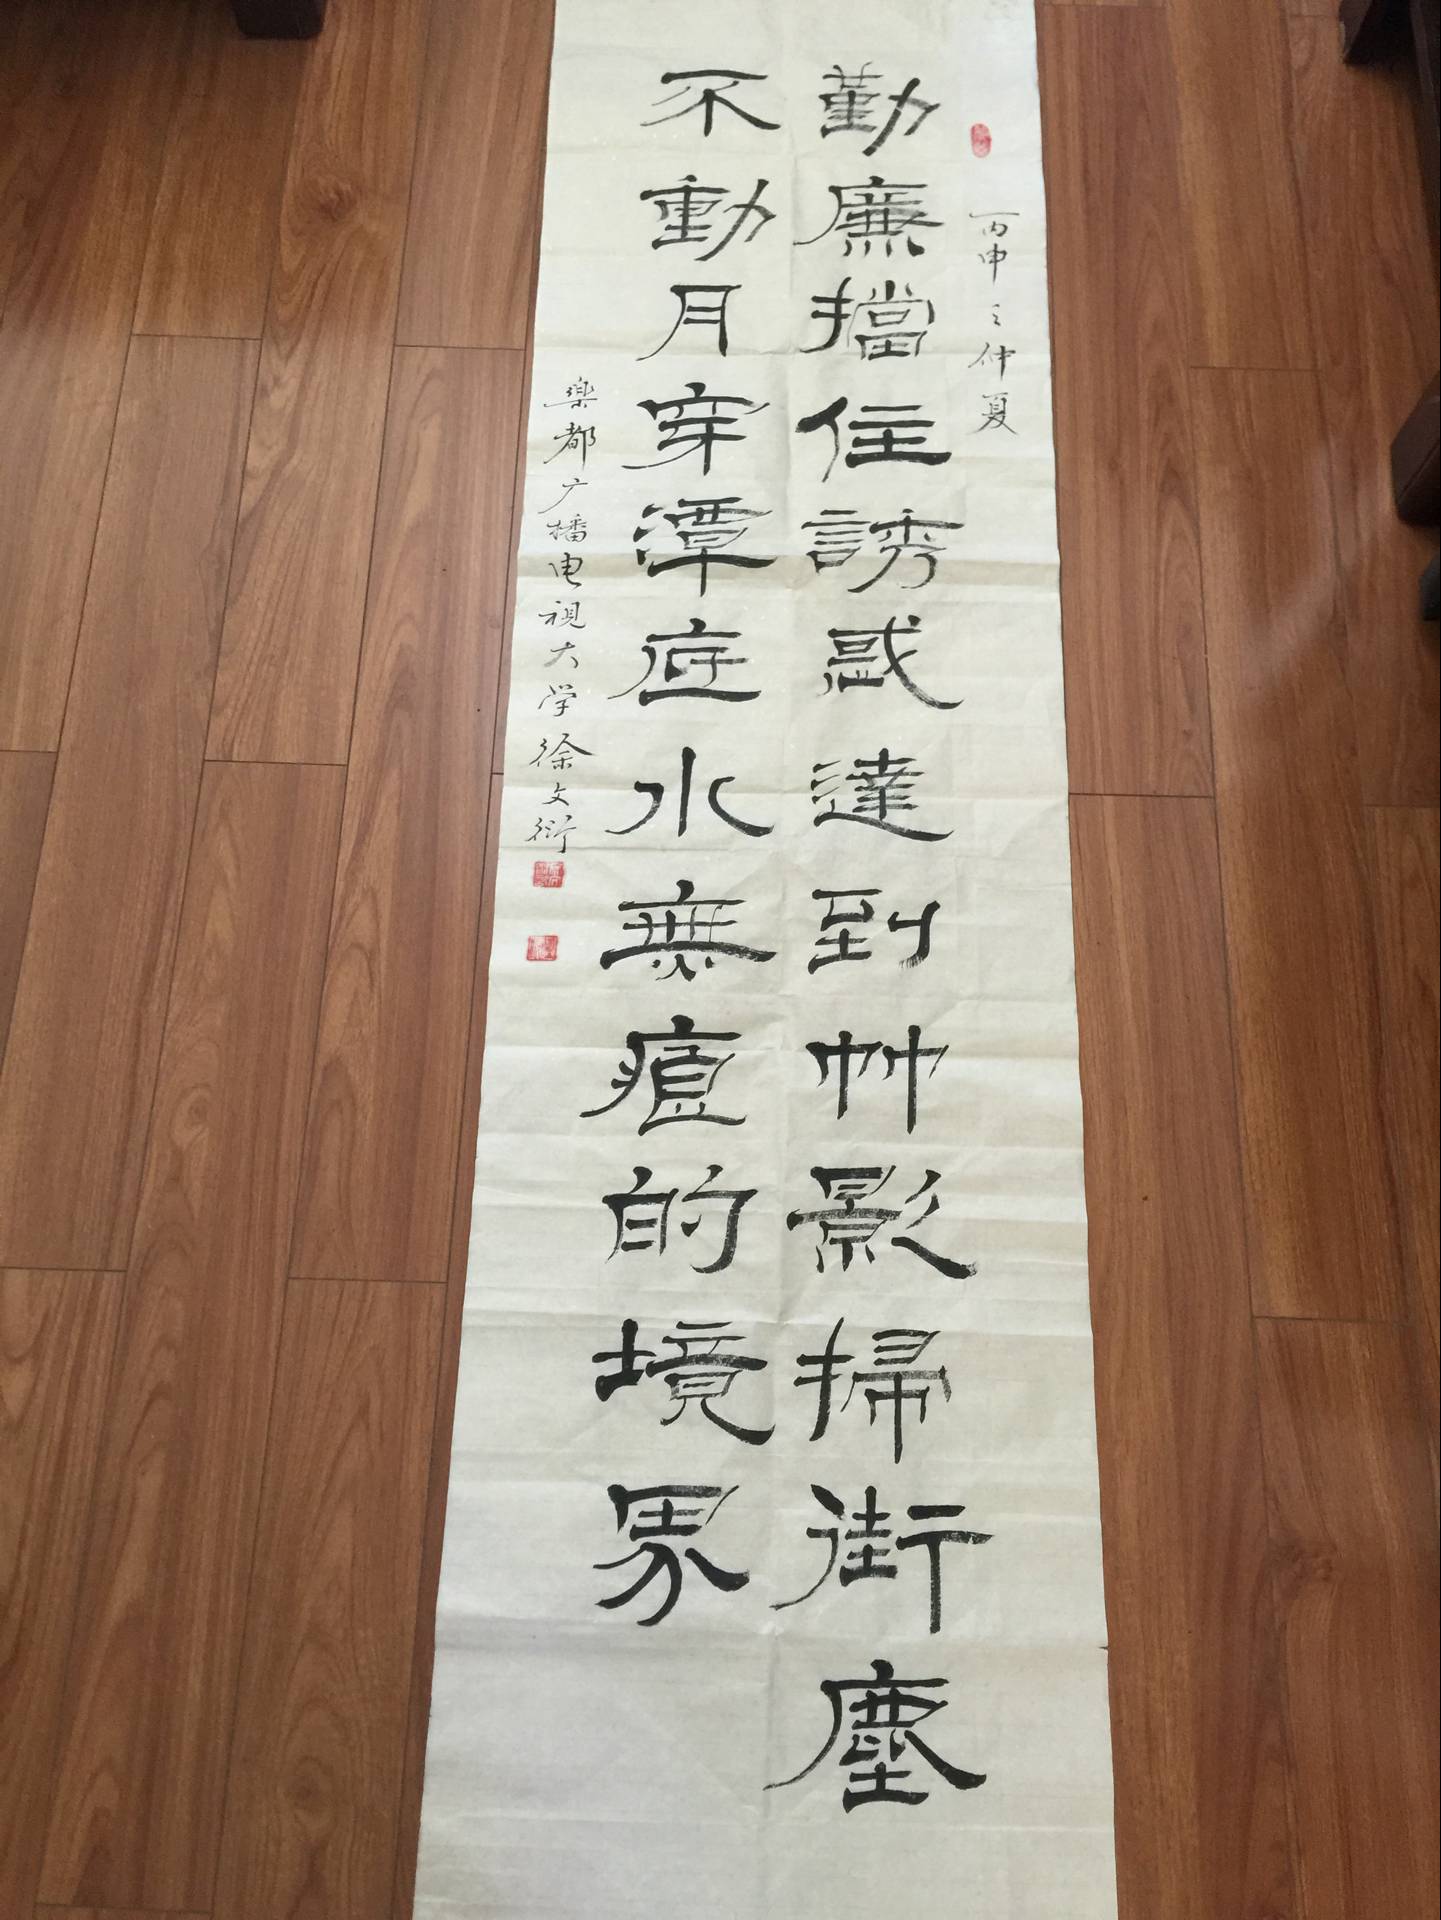 丙申之仲夏
勤廉擋住誘惑達到竹影掃街塵
不動月穿潭底水無痕的境界
樂都广播电视大学徐文衍